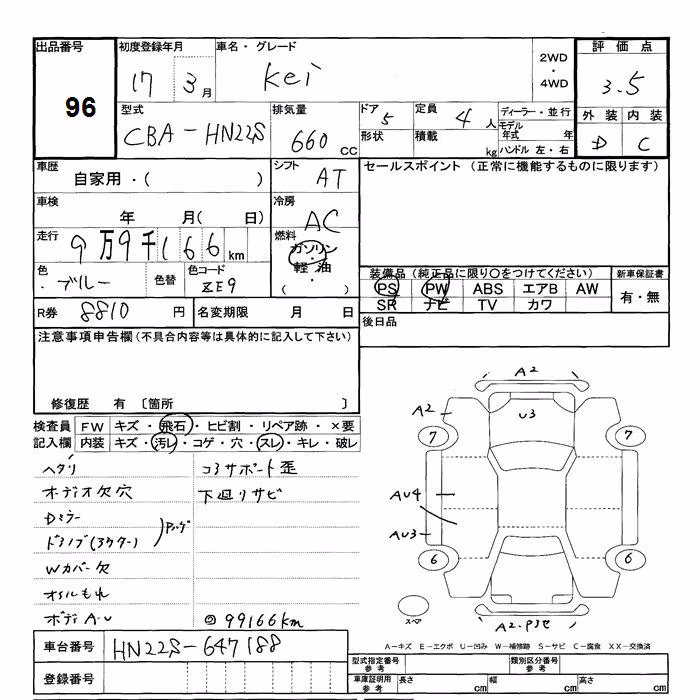 出品番号 初度登録年月 車名・グレード 2WD・4WD 評価点
96 17 3月 Kei 3.5
型式 排気量 ドア 定員 ディーラー・並行 外装 内装
CBA-HN22S 660cc 5 4人 モデル年式 年 D C
形状 積載 kg ハンドル 左・右
車歴 シフト セールスポイント (正常に機能するものに限ります)
自家用・( ) AT
車検 冷房
年 月( 日) AC
走行 燃料
9万9千166km ガソリン・軽油・( )
色 色替 色コード 装備品 (純正品に限り○をつけてください) 新車保証書
ブルー ZE9 PS PW ABS エアB AW 有・無
SR ナビ TV カワ
R券 8810円 名変期限 月 日 後日品
注意事項申告欄(不具合内容等は具体的に記入して下さい)
修復歴 有 〔箇所 〕
検査員 FW キズ・飛石・ヒビ割・リペア跡・×要
記入欄 内装 キズ・汚レ・コゲ・穴・スレ・キレ・破レ
ヘタリ コアサポート歪
オーディオ欠穴 下廻りサビ
Dミラー
Wカバー欠
オイルもれ
ボディA・U 99166km
A2
A2 U3
7 7
AU4
AU3
6 6
スマ
A2
A-キズ E-エクボ U-凹み W-補修跡 S-サビ C-腐食 XX-交換済
車台番号 HN22S-647188
登録番号
型式指定番号 参考 類別区分番号 参考
車庫証明用 参考 長さ cm 幅 cm 高さ cm